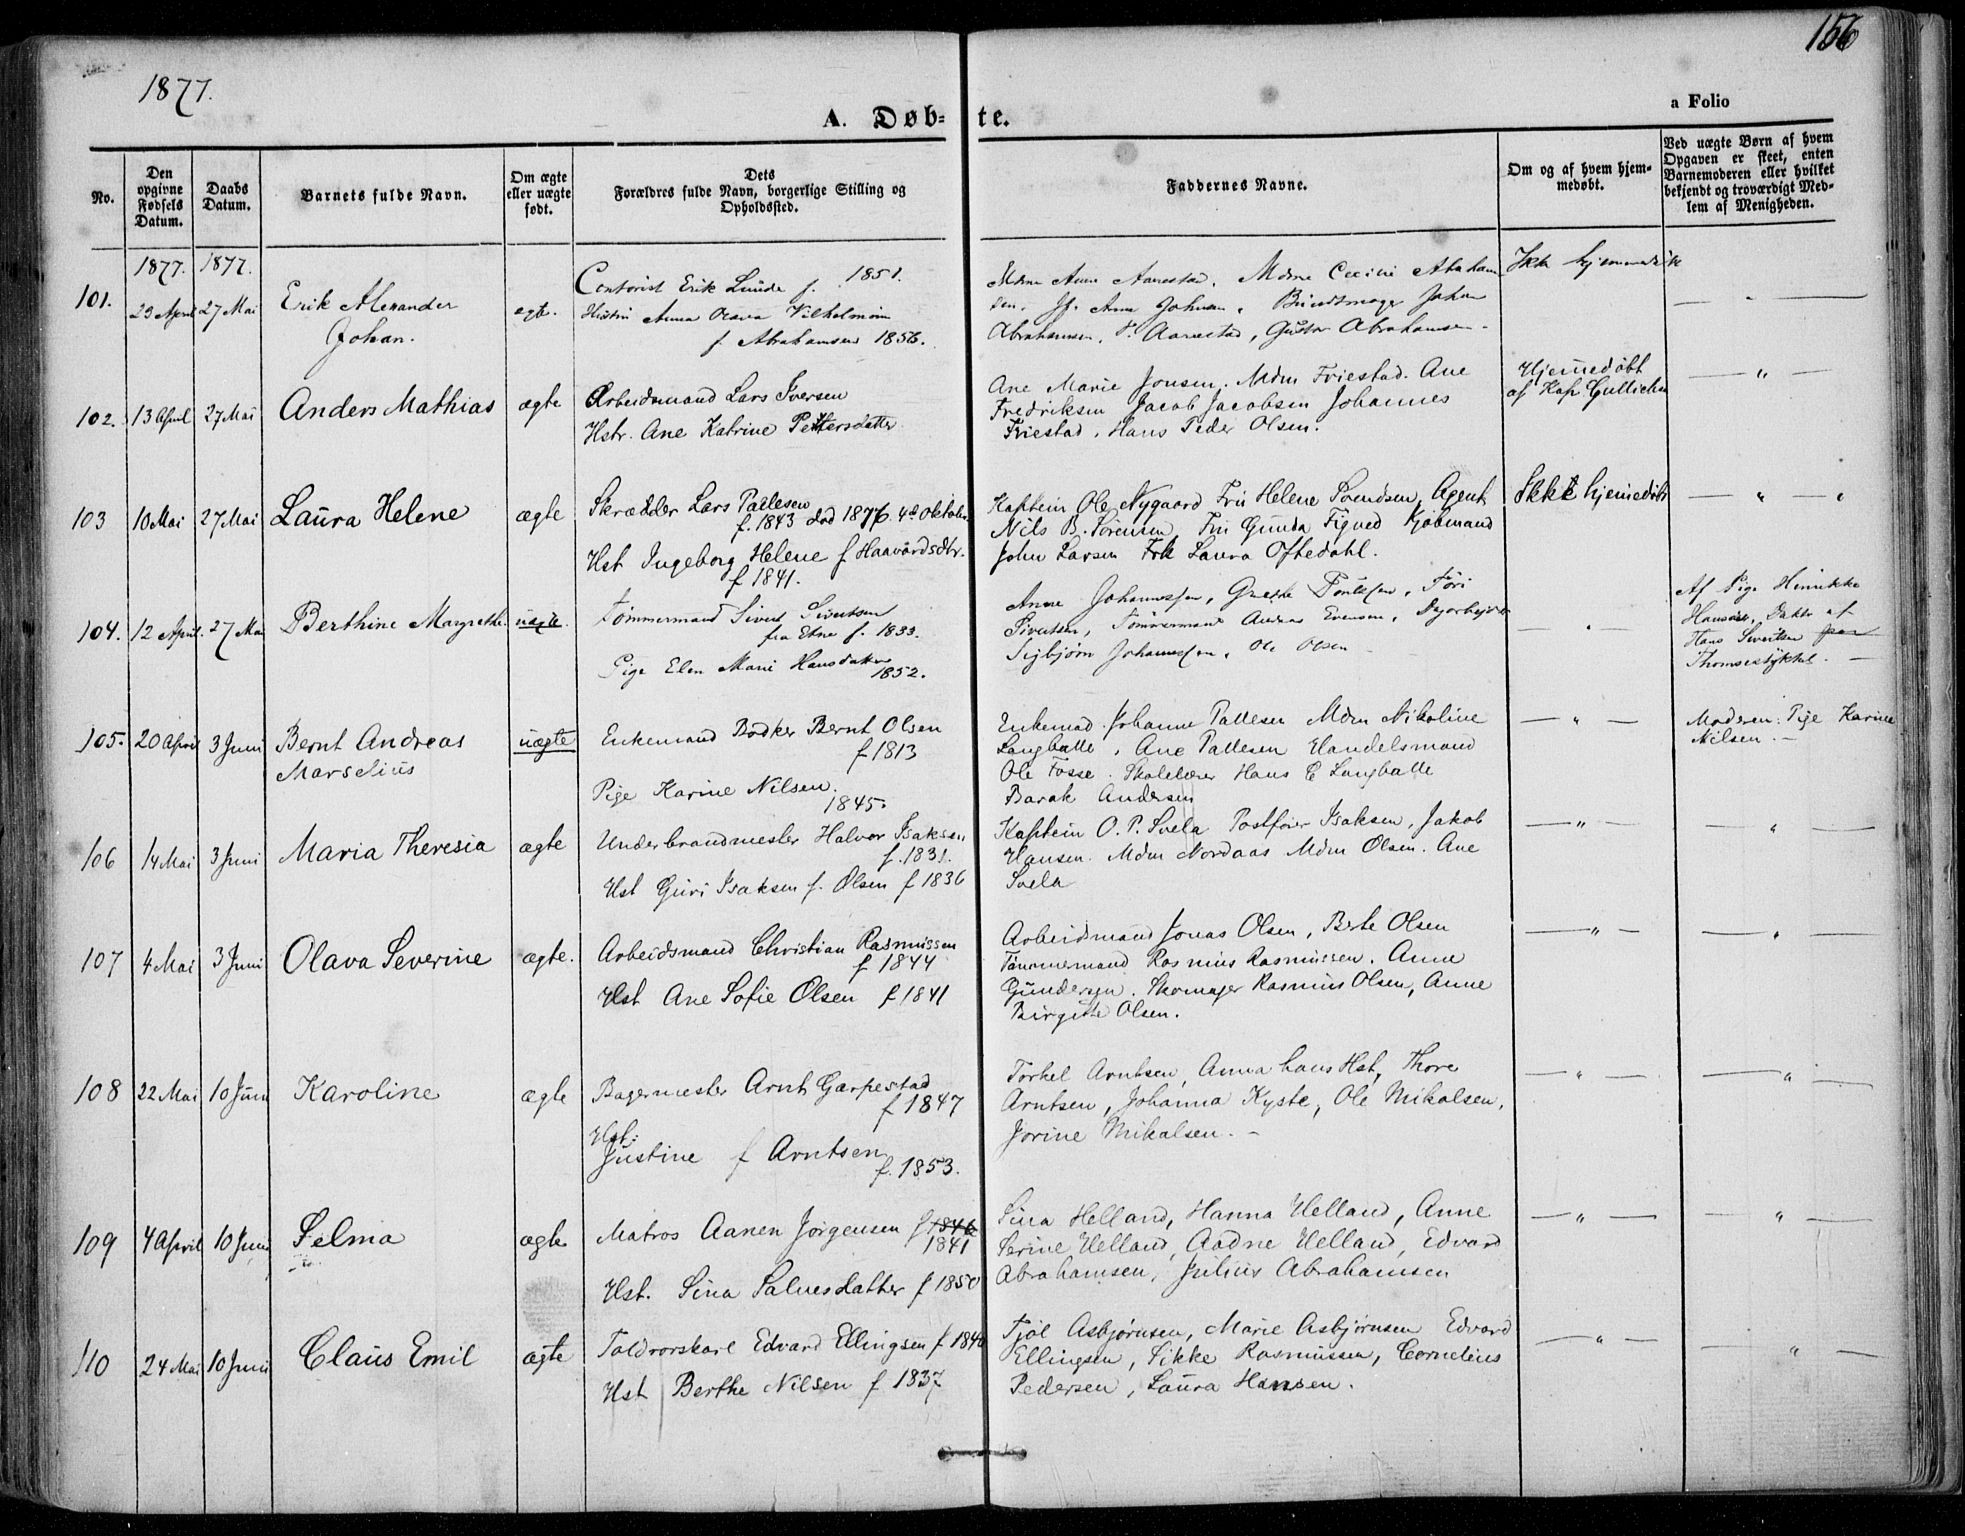 156
1877.
A. Døb- te.
a Folio
No.
Den opgivne Fødsels Datum.
Daabs Datum.
Barnets fulde Navn.
Om ægte eller uægte født.
Dets Forældres fulde Navn, borgerlige Stilling og Opholdssted.
Faddernes Navne.
Om og af hvem hjemmedøbt.
Ved uægte Børn af hvem Opgaven er skeet, enten Barnemoderen eller hvilket bekjendt og troværdigt Medlem af Menigheden.
1877. 1877.
101. 23 April 27 Mai Erik Alexander Johan. egte.
Contorist Erik Lunde f. 1851.
Hustru Anna Olava Vilhelmine
f. Abrahamsen 1856.
Mdme Anne Aanestad. Mdme Cecilie Abraham
sen, Anna Johnsen, Bundtmager Johan
Abrahamsen, P. Aanestad, Gustav Abrahamsen.
Ikke hjemmedøbt
102. 13 April 27 Mai Anders Mathias ægte
Arbeidsmand Lars Iversen
Hstr. Ane Katrine Pettersdatter
Ane Marie Jonsen. Mdm Friestad. Ane
Fredriksen Jacob Jacobsen Johannes
Friestad. Hans Peder Olsen.
Hjemmedøbt
af Kap.
103 10 Mai 27 Mai Laura Helene ægte
Skrædder Lars Pallesen
f. 1843 død 1876. 4de Oktober
Hst Ingeborg Helene f Haavardsdtr.
f 1841.
Kaptein Ole Nygaard Fru Helene Svendsen, Agent
Nils B. Sørensen Fru Gunda Figved Kjøbmand
John Larsen Frk Laura Oftedahl.
Ikke hjemedøbt
104. 12 April. 27 Mai Berthine Margrethe uægte.
Tømmermand Sivert Sivertsen
fra Etne f. 1833.
Pige Elen Marie Hansdatter
1852.
Anne Johannessen, Grethe
Sivertsen, Tømmermand Andreas Evensen, Dagarbeider
Sigbjørn Johannessen, Ole Olsen
Af Pige Henrikke
Hansen, Datter af
Hans Sivertsen
105. 20 April 3 Juni Bernt Andreas Marselius uægte
Enkemand Bødker Bernt Olsen
f 1813
Pige Karine Nilsen.
1845.
Enkemad. Johanne Pallesen Mdm Nikoline
Langballe, Ane Pallesen Handelsmand
Ole Fosse. Skolelærer Hans E Langballe
Barak Andersen
Moderen: Pige Karine
Nilsen.
106 14 Mai 3 Juni Maria Theresia ægte
Underbrandmester Halvor Isaksen
f. 1831.
Hst Guri Isaksen f. Olsen f 1836
Kaptein O. P. Svela Postfører Isaksen, Jakob
Hansen. Mdm Nordaas Mdm Olsen. Ane
Svela
107 4 Mai 3 Juni Olava Severine ægte.
Arbeidsmand Christian Rasmussen
f 1844
Hst Ane Sofie Olsen f 1841
Arbeidsmand Jonas Olsen, Brte Olsen
Tømmermand Rasmus Rasmussen. Anne
Gundersen. Skomager Rasmus Olsen, Anne
Birgitte Olsen.
108 22 Mai 10 Juni Karoline ægte
Bagermester Arnt Garpestad
f 1847
Hst.
Justine f Arntsen
f. 1853.
Torkel Arntsen, Anna hans Hst, Thore
Arntsen, Johanna Kyste, Ole Mikalsen,
Jorine Mikalsen.
109 4 April 10 Juni Selma ægte
Matros Aanen Jørgensen f 1846
1841
Hst. Sina Salvesdatter f 1850
Sina Helland, Hanna Helland, Anne
Serine Helland, Aadne Helland, Edvard
Abrahamsen, Julius Abrahamsen
110 24 Mai 10 Juni Claus Emil ægte
Toldrorskarl Edvard Ellingsen f 1840
Hst Berthe Nilsen f 1837
Tjøl Asbjørnsen, Marie Asbjørnsen Edvard
Ellingsen, Sikke Rasmussen, Cornelius
Pedersen, Laura Hansen.